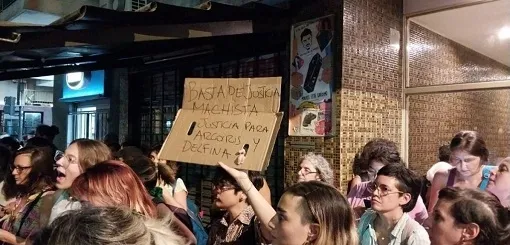 BASTA DE JUSTICIA
MACHISTA
JUSTICIA PARA
ARCOIRIS Y
DELFINA